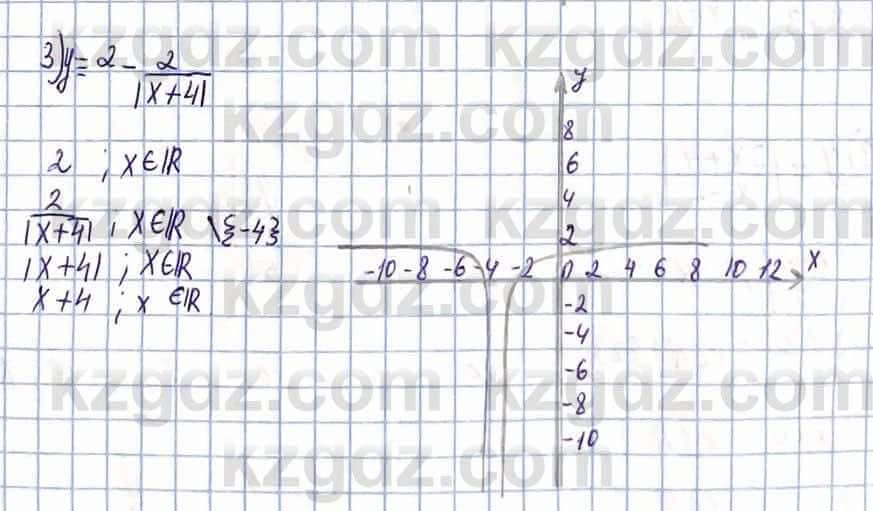 3) y = 2 - 2/|x+4|
2 ; x ∈ ℝ
2/|x+4| ; x ∈ ℝ \ {-4}
|x+4| ; x ∈ ℝ
x+4 ; x ∈ ℝ
y
8
6
4
2
-10 -8 -6 -4 -2 0 2 4 6 8 10 12 x
-2
-4
-6
-8
-10
kzgdz.com kzgdz.com
kzgdz.com
kzgdz.com kzgdz.com
kzgdz.com
kzgdz.com kzgdz.com
kzgdz.com